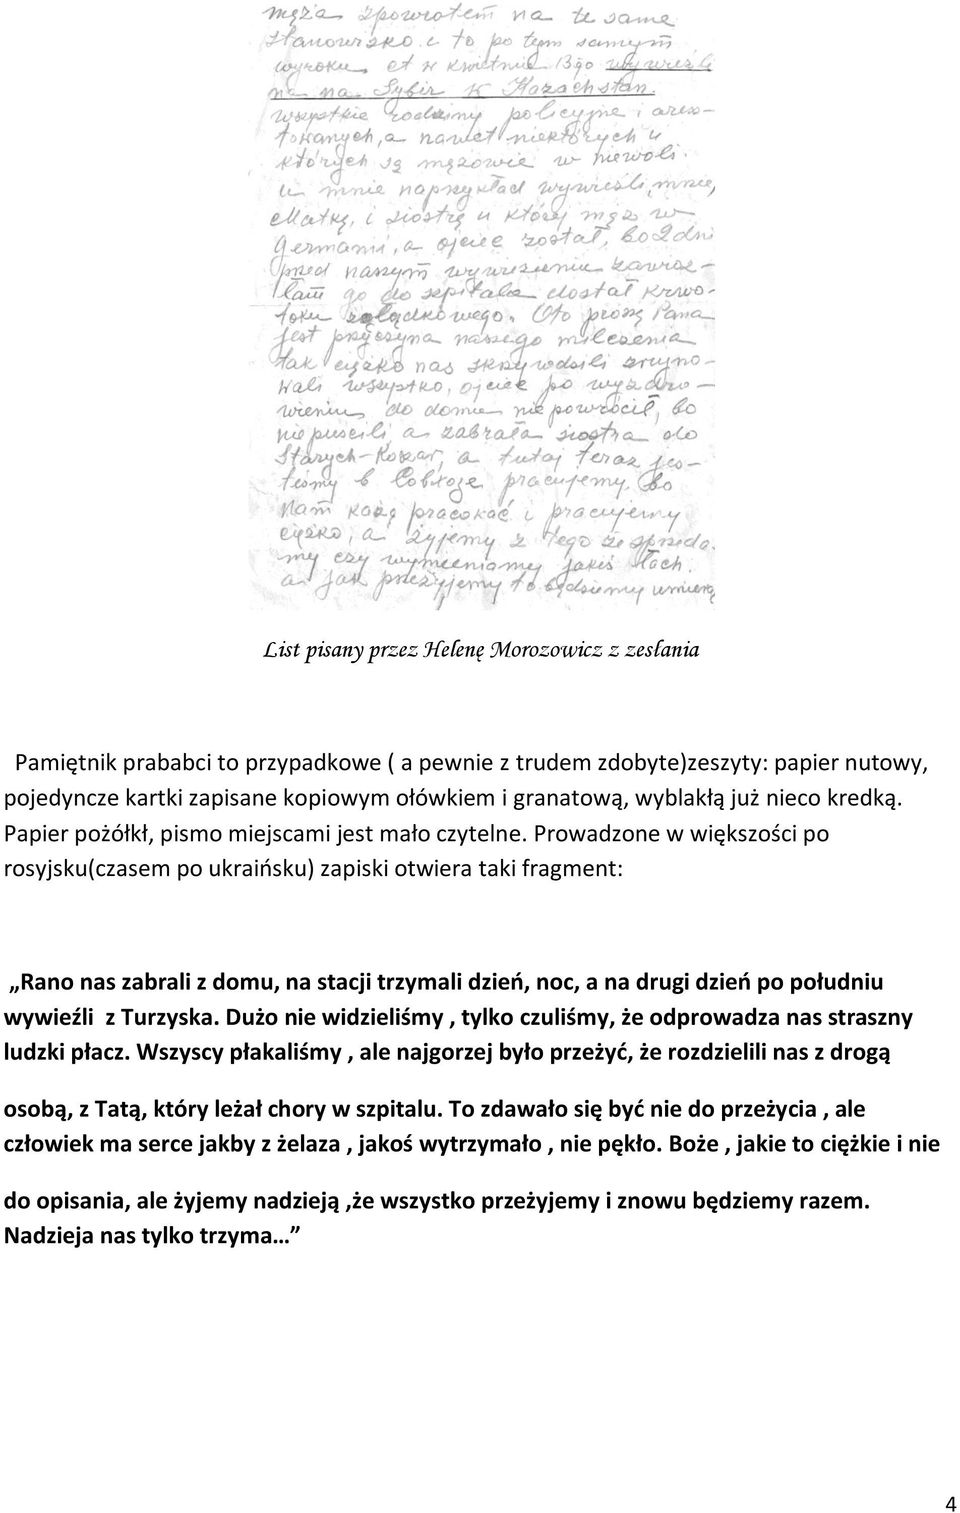 męża zpowrotem na te same
stanowisko i to po tym samym
wyroku. A w kwietniu 13go wywieźli
na na Sybir w Kazachstan.
wszystkie rodziny policyjne i aresz-
towanych, a nawet niektórych u
których są mężowie w niewoli.
u mnie naprzykład wywieśli, mnie,
Matkę, i siostrę u której mąż w
Germanii, a ojciec został, bo 2 dni
przed naszym wywiezieniu zawioz-
łam go do szpitala dostał krwo-
toku żołądkowego. Oto proszę Pana
jest przyczyna naszego milczenia
tak ciężko nas skrzywdzili zrujno-
wali wszystko, ojciec po wyzdro-
wieniu do domu nie powrócił, bo
nie puscili, a zabrała siostra do
Starych-Koszar, a tutaj teraz jes-
teśmy b pracujemy. Bo
nam każą pracować i pracujemy
ciężko, a żyjemy z tego że sprzeda
my czy wymieniamy jakiś łach.
a jak przeżyjemy to będziemy umierą
List pisany przez Helenę Morozowicz z zesłania
Pamiętnik prababci to przypadkowe ( a pewnie z trudem zdobyte)zeszyty: papier nutowy,
pojedyncze kartki zapisane kopiowym ołówkiem i granatową, wyblakłą już nieco kredką.
Papier pożółkł, pismo miejscami jest mało czytelne. Prowadzone w większości po
rosyjsku(czasem po ukraińsku) zapiski otwiera taki fragment:
„Rano nas zabrali z domu, na stacji trzymali dzień, noc, a na drugi dzień po południu
wywieźli  z Turzyska. Dużo nie widzieliśmy , tylko czuliśmy, że odprowadza nas straszny
ludzki płacz. Wszyscy płakaliśmy , ale najgorzej było przeżyć, że rozdzielili nas z drogą
osobą, z Tatą, który leżał chory w szpitalu. To zdawało się być nie do przeżycia , ale
człowiek ma serce jakby z żelaza , jakoś wytrzymało , nie pękło. Boże , jakie to ciężkie i nie
do opisania, ale żyjemy nadzieją ,że wszystko przeżyjemy i znowu będziemy razem.
Nadzieja nas tylko trzyma… ”
4